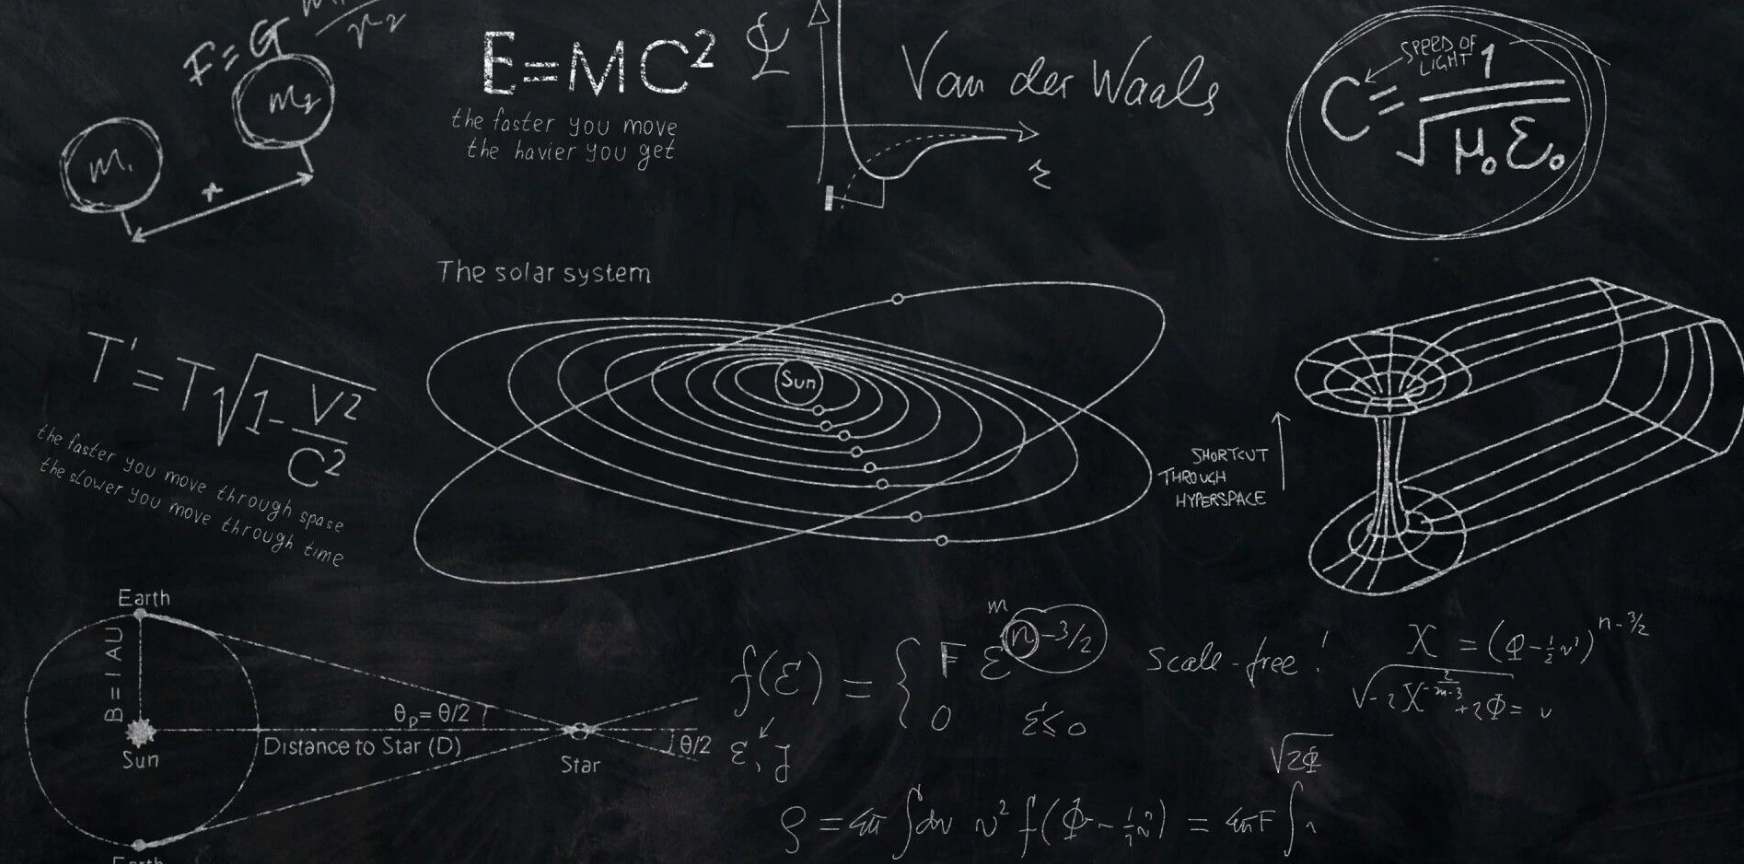 F=G
m₂
m₁
r
E=MC²
the faster you move
the havier you get
Van der Waals
r
SPEED OF
LIGHT
C = 1/√μ₀ε₀
The solar system
Sun
T'=T√1-V²/C²
the faster you move through spase
the slower you move through time
SHORTCUT
THROUGH
HYPERSPACE
Earth
B=1AU
θp=θ/2
Distance to Star (D)
θ/2
Sun
Star
Earth
m
f(ε) = { F ε^n-3/2
0 ε≤0
ε, J
Scale-free!
X = (Φ-½v²)^n-3/2
√2Φ
ρ = 4π ∫dv v² f(Φ-½v²) = 4πF ∫